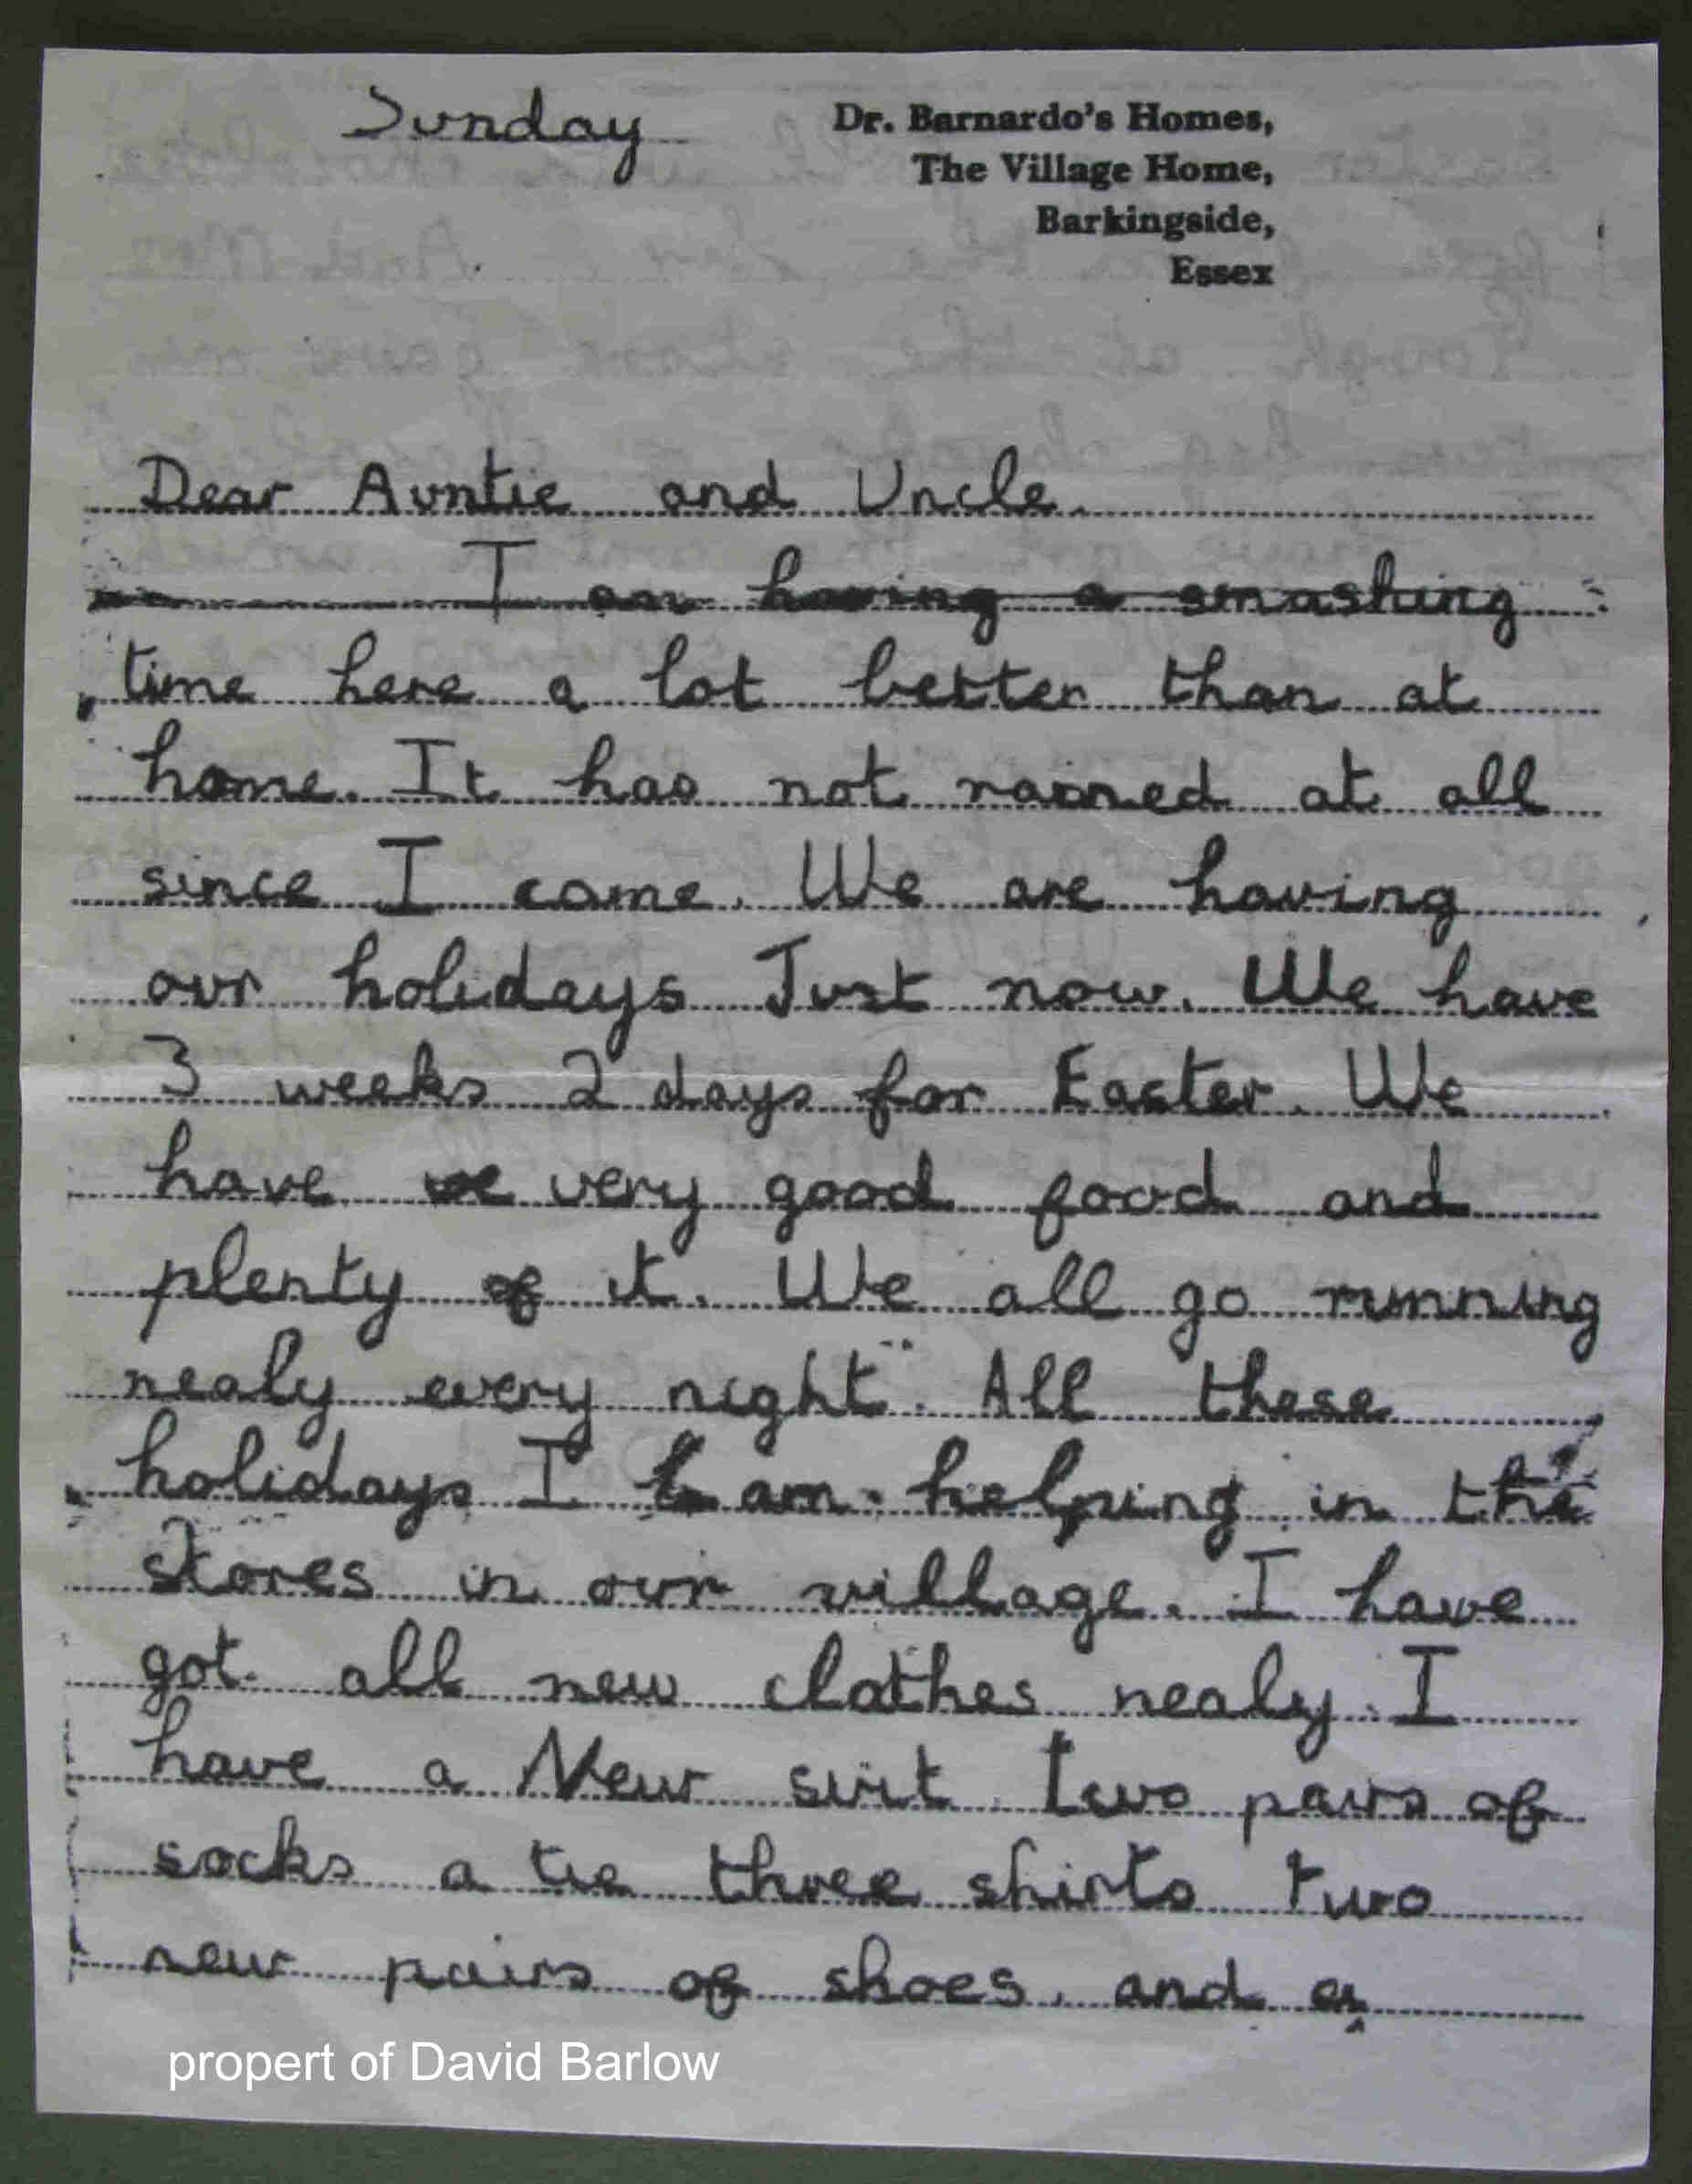 Sunday
Dr. Barnardo's Homes,
The Village Home,
Barkingside,
Essex
Dear Auntie and Uncle.
I am having a smashing
time here a lot better than at
home. It has not rained at all
since I came. We are having
our holidays Just now. We have
3 weeks 2 days for Easter. We
have very good food and
plenty of it. We all go running
nealy every night. All these
holidays I am helping in the
stores in our village. I have
got all new clothes nealy. I
have a New suit two pairs of
socks a tie three shirts two
new pairs of shoes. and
propert of David Barlow